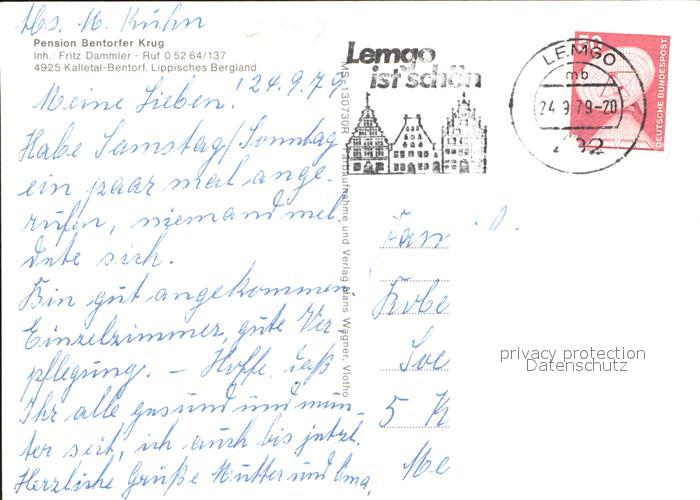 Abs. M. Kühn
Pension Bentorfer Krug
Inh.: Fritz Dammler - Ruf 0 52 64/137
4925 Kalletal-Bentorf, Lippisches Bergland
24.9.79
Meine Lieben!
Habe Samstag/Sonntag
ein paar mal ange-
rufen, niemand mel-
dete sich.
Bin gut angekommen.
Einzelzimmer, gute Ver-
pflegung. – Hoffe, daß
Ihr alle gesund und mun-
ter seit, ich auch bis jetzt.
Herzliche Grüße Mutter und Oma.
MS-130730R Farbaufnahme und Verlag Hans Wagner, Vlotho
Lemgo
ist schön
LEMGO
mb
24.9.79-20
DEUTSCHE BUNDESPOST
Fam
5 K
privacy protection
Datenschutz